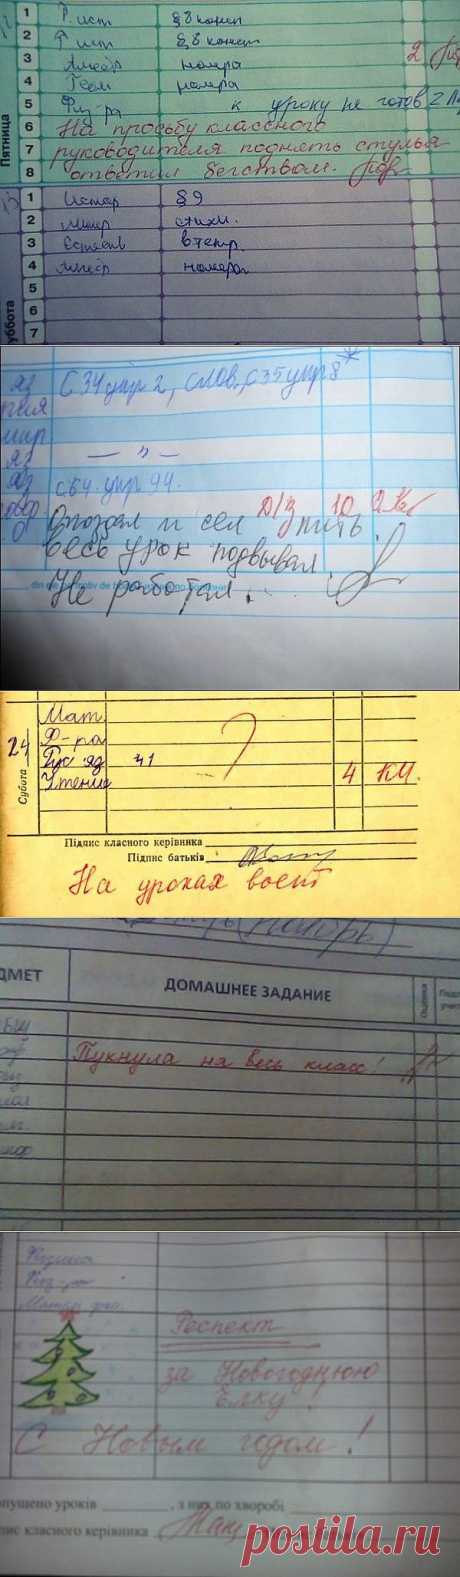 1 Р. ист § 8 консп
2 Р. ист § 8 конст
3 Алгебр номра 2
4 Геом номра
5 Физ-ра к уроку не готов 2
6 На просьбу классного
7 руководителя поднять стулья
8 ответил бегством.
Пятница
1 Истор § 9
2 Литер стихи.
3 Естеств в тетр.
4 Алгебр номера
5
6
7
уббота
яз С 34 упр 2, Слов, С 35 упр 8*
мир
яз — " —
яз С 64 упр 94.
Д/з 10
Опоздал и сел пить.
Весь урок подвывал.
Не работал.
Мат.
Ф-ра
24 Рус яз 41
Чтение 4 КМ.
Субота
Підпис класного керівника
Підпис батьків
На уроках воет
ДМЕТ
ДОМАШНЕЕ ЗАДАНИЕ
Оценка
Пукнула на весь класс!
Физика
Физ-ра
Респект
за Новогоднюю
Ёлку!
С Новым годом!
опущено уроків , з них по хворобі
пис класного керівника
postila.ru